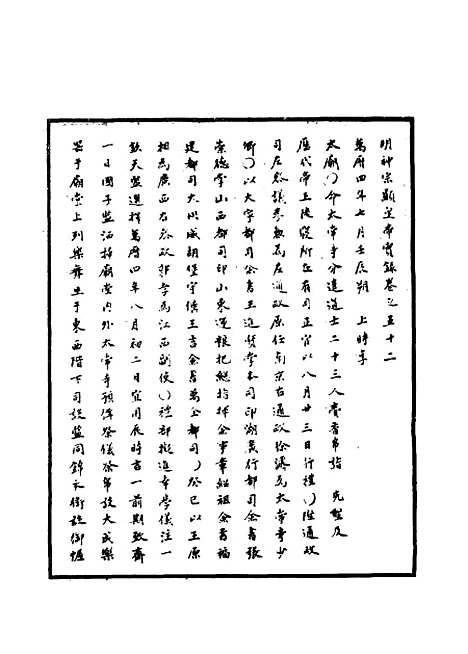 明神宗顯皇帝實錄卷之五十二
萬曆四年七月壬辰朔　上時享
太廟○命太常寺分遣道士二十三人賫香帛詣　先聖及
歷代帝王陵寢所在有司正官以八月廿三日行禮○陞通政
司左參議李
為左通政原任南京右通政徐
為太常寺少
卿○以大寧都司僉書王進賢掌本司印湖廣行都司僉書張
崇德掌山西都司印山東運粮把總指揮僉事韋紹祖僉書福
建都司大同威胡堡守備王言僉書萬全都司○癸巳以王原
相為廣西右參政郭孝為江西副使○禮部擬進幸學儀注一
欽天監選擇萬曆四年八月初二日宜用辰時吉一前期致齋
一日國子監洒掃廟堂內外太常寺預備祭儀祭帛設大成樂
器于廟堂上列樂舞生于東西階下司設監同錦衣衛設御幄